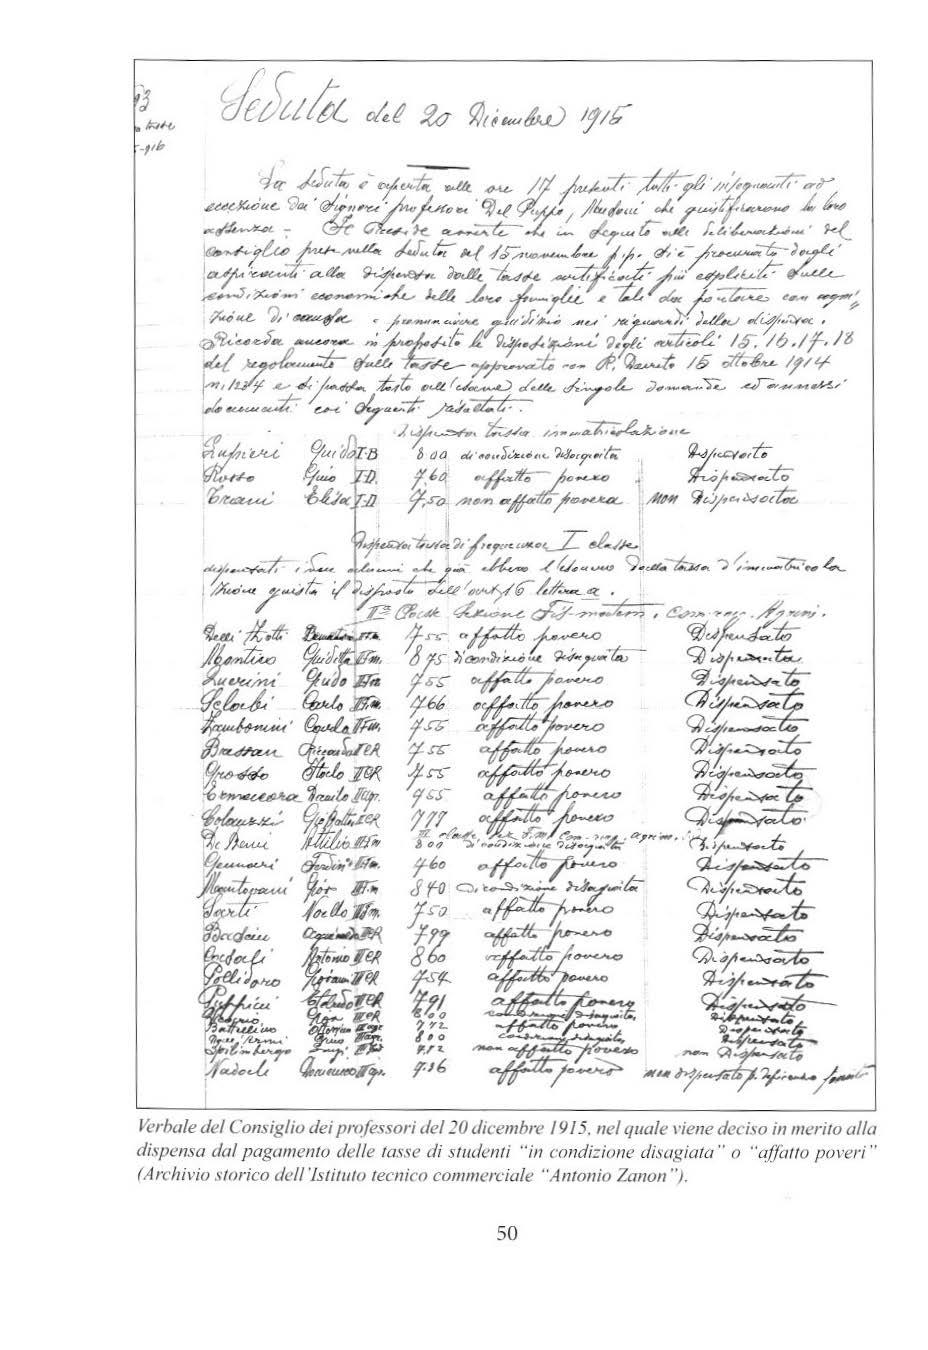 93
Seduta del 20 Dicembre 1915
La seduta è aperta alle ore 17 presenti tutti gli insegnanti ad
eccezione dei Signori professori Del Puppo, che giustificarono la loro
assenza - Il Preside avverte che in seguito alle deliberazioni del
Consiglio prese nella seduta del 15 novembre p.p. si è procurato dagli
aspiranti alla dispensa dalle tasse certificati più espliciti sulle
condizioni economiche delle loro famiglie e tali da portare con cogni"
zione di causa a pronunciare giudizio nei riguardi della dispensa.
Ricorda ancora in proposito le disposizioni degli articoli 15.16.17.18
del regolamento sulle tasse approvato con R. Decreto 15 ottobre 1914
n. 1234 e si passa tosto all'esame delle singole domande ed annessi
documenti coi seguenti risultati.
Dispensa tassa immatricolazione
Guido I-B 800 di condizione disagiata Dispensato
Rosso Gino I-D. 7,60 affatto povero Dispensato
Trani Elisa I-D 7,50 non affatto povera non Dispensata
Dispensa tassa di frequenza I classe
dispensati i due alunni che già ebbero l'esonero dalla tassa d'immatricola
zione giusta il disposto dell'art. 16 lettera a.
IIa Classe Sezione Fis-matem. Com-rag. Agrim.
Delli Zotti 7 55 affatto povero Dispensato
Guiditta II F.m. 8 75 di condizione disagiata Dispensata
Lucrini Guido 7 55 affatto povero Dispensato
Sclabi Carlo 7 66 affatto povero Dispensato
Zambonini Carlo II F.m. 7 55 affatto povero Dispensato
Bassan Riccardo II CR 7 55 affatto povero Dispensato
Grosso Italo II CR 7 55 affatto povero Dispensato
Ermacora Danilo II agr. 7 55 affatto povero Dispensato
Colauzzi Gio Batta II CR 7 77 affatto povero Dispensato
III classe Sez. F.m. Com-rag. agrim.
De Beni Attilio III F.m 8 00 di condizione disagiata Dispensato
Gennari 7 60 affatto povero Dispensato
Mantovani 8 40 Di condizione disagiata Dispensato
Sarti Noello III F.m. 7 50 affatto povero Dispensato
III CR 7 99 affatto povero Dispensato
Antonio III CR 8 60 affatto povero Dispensato
Pollidoro III CR 7 54 affatto povero Dispensato
III CR 7 91 affatto povero Dispensato
III CR 8 00 condizione disagiata Dispensato
7 72 affatto povero Dispensato
8 00 condizione disagiata Dispensato
Spilimbergo Luigi 7.12 non affatto povero non Dispensato
Nadali Domenico III agr. 7.36 affatto povero non dispensato p. deficienza
Verbale del Consiglio dei professori del 20 dicembre 1915, nel quale viene deciso in merito alla
dispensa dal pagamento delle tasse di studenti “in condizione disagiata” o “affatto poveri”
(Archivio storico dell’Istituto tecnico commerciale “Antonio Zanon”).
50